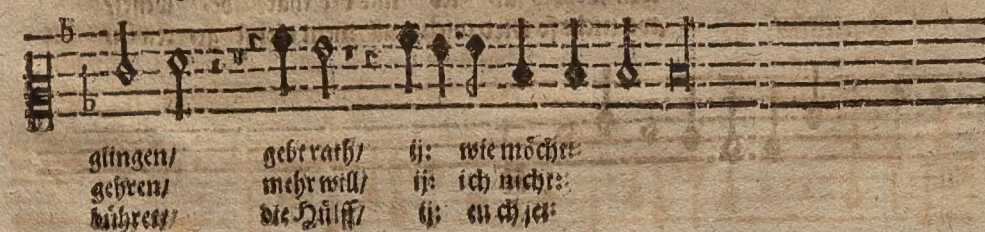 glingen/ gebt rath/ ij: wie möcht:
gehren/ mehr will/ ij: ich nicht:
bühret/ die Hülff/ ij: euch jet: